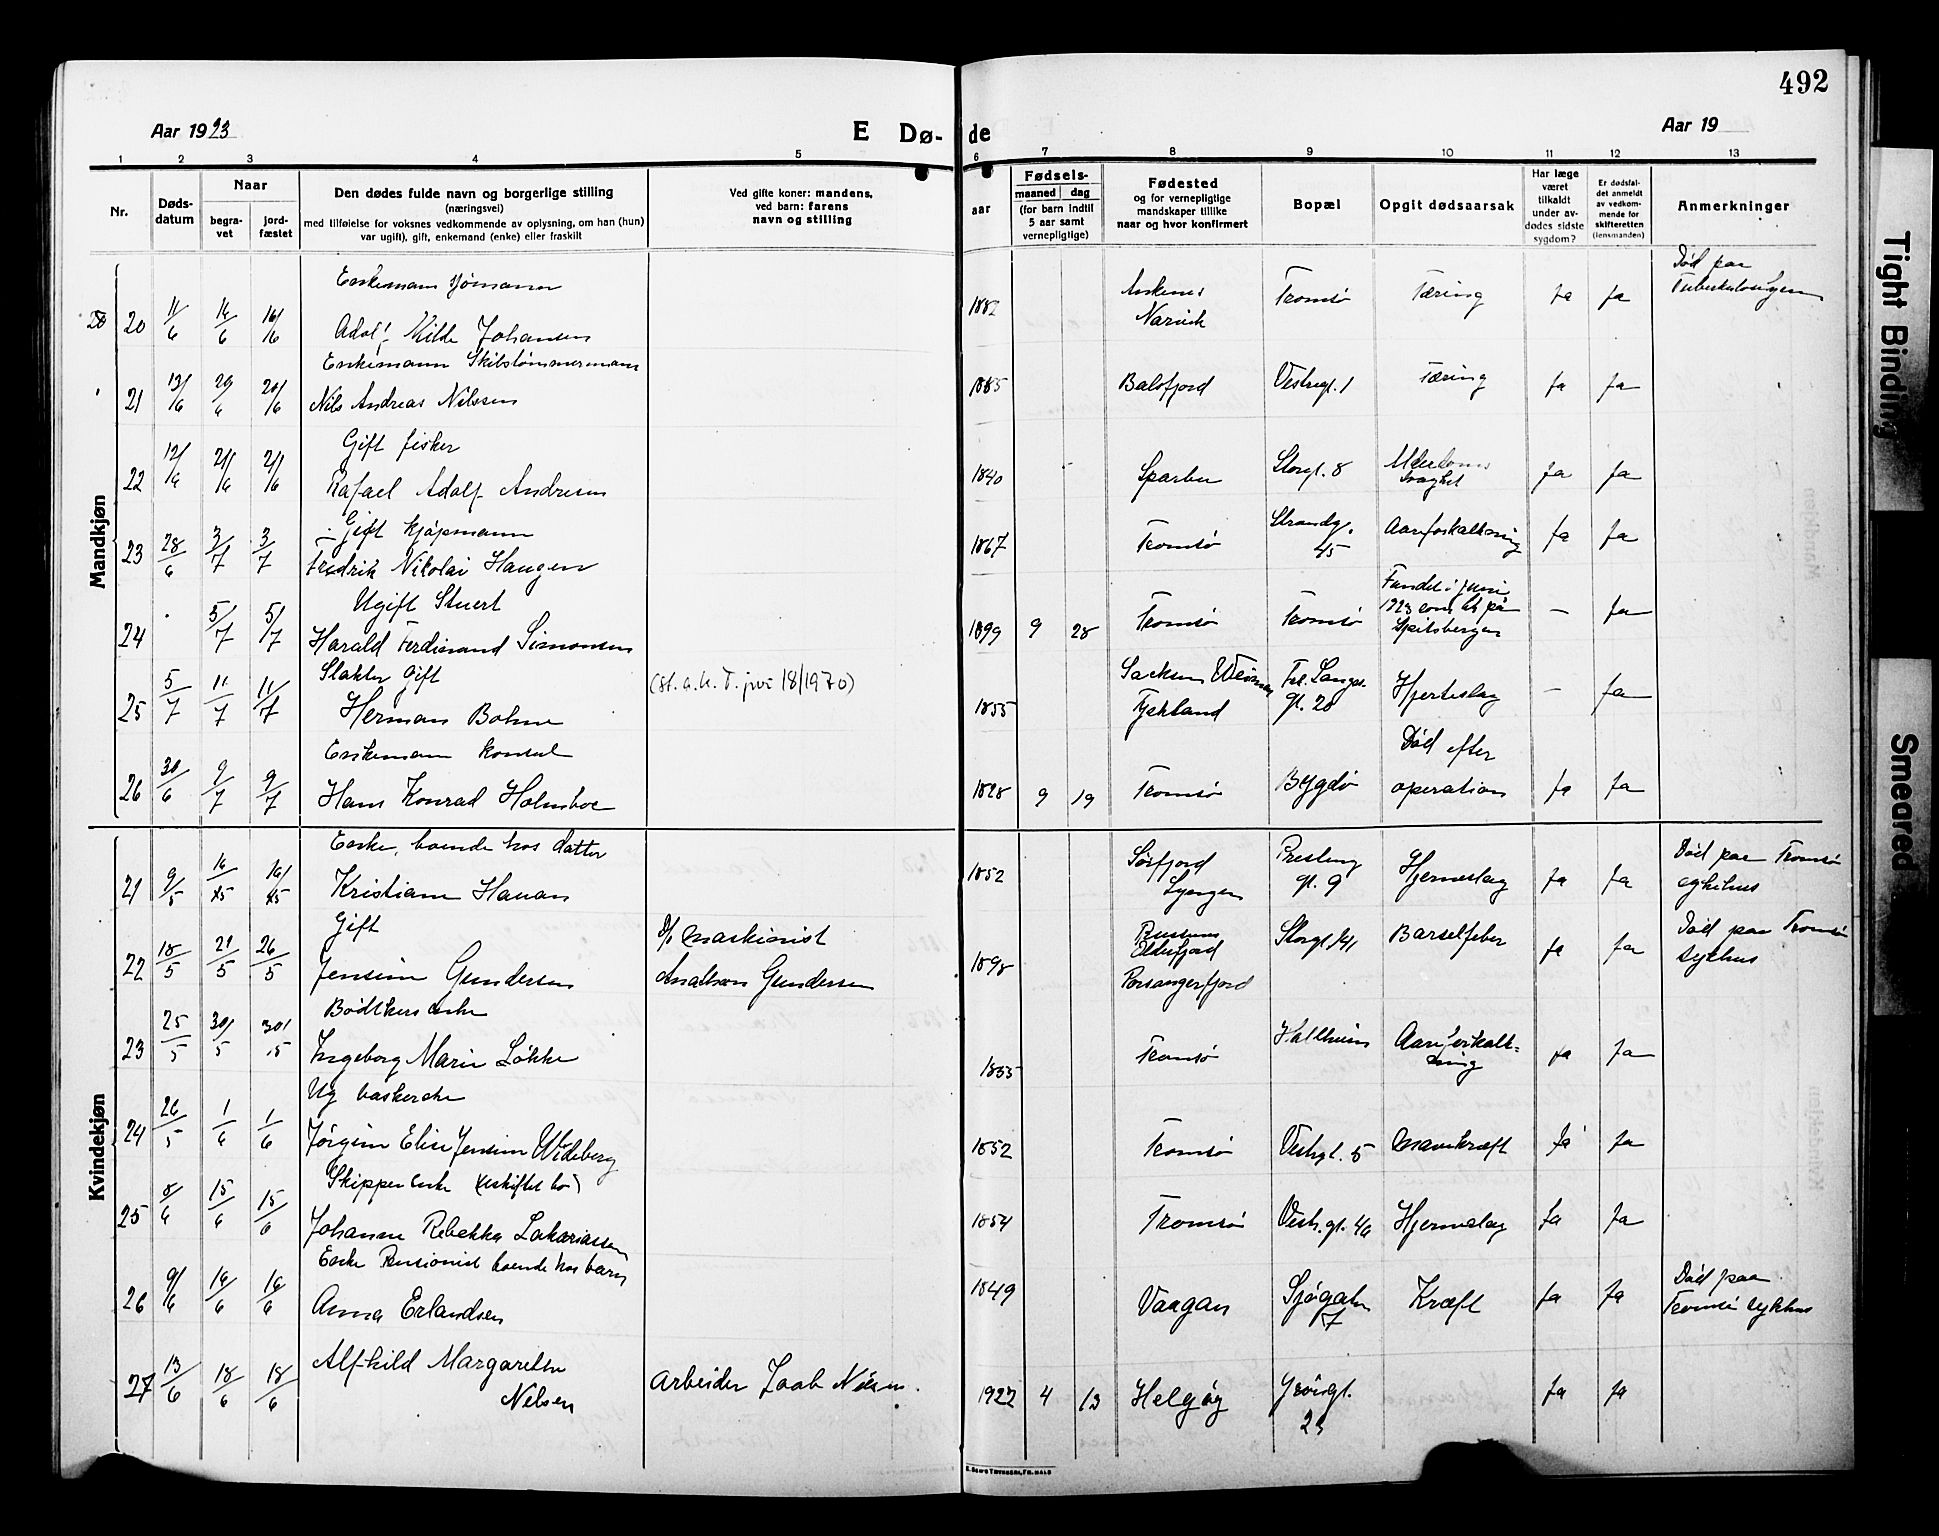 492
Aar 1923
E Dø-
de
Aar 19
1 2 3 4 5 6 7 8 9 10 11 12 13
Nr.
Døds-
datum
Naar
begra-
vet
jord-
fæstet
Den dødes fulde navn og borgerlige stilling
(næringsvei)
med tilføielse for voksnes vedkommende av oplysning, om han (hun)
var ugift), gift, enkemand (enke) eller fraskilt
Ved gifte koner: mandens,
ved barn: farens
navn og stilling
aar
Fødsels-
maaned dag
(for barn indtil
5 aar samt
vernepligtige)
Fødested
og for vernepligtige
mandskaper tillike
naar og hvor konfirmert
Bopæl
Opgit dødsaarsak
Har læge
været
tilkaldt
under av-
dødes sidste
sygdom?
Er dødsfal-
det anmeldt
av vedkom-
mende for
skifteretten
(lensmanden)
Anmerkninger
Mandkjøn
Enkemann sjømann
20 11/6 16/6 16/6 Adolf Milde Johansen 1882 Ankenes Narvik Tromsø Tæring ja ja Død paa
Enkemann Skibstømmermann
21 13/6 20/6 20/6 Nils Andreas Nilssen 1885 Balsfjord Vestregt. 1 Tæring ja ja
Gift fisker
22 12/6 21/6 21/6 Rafael Adolf Andresen 1840 Sparbu Storgt. 8 Alderdoms svaghet ja ja
Gift kjøpmann
23 28/6 3/7 3/7 Fredrik Nikolai Haugen 1867 Tromsø Strandg. 45 Aareforkalkning ja ja
Ugift Stuert
24 5/7 5/7 Harald Ferdinand Simonsen 1899 9 28 Tromsø Tromsø Fundet i juni 1923 som lik på Spitsbergen — ja
Slakter gift
(st. a. k. T. jnr 18/1970)
25 5/7 11/7 11/7 Herman Bohne 1855 Sachsen Weimar Tyskland Fr. Langes gt. 20 Hjerteslag — ja
Enkemann konsul
26 30/6 9/7 9/7 Hans Konrad Holmboe 1828 9 19 Tromsø Bygdø Død efter operation ja ja
Kvindekjøn
Enke, boende hos datter
21 9/5 16/5 16/5 Kristiane Hauan 1852 Sørfjord Lyngen gt. 9 Hjerneslag ja ja Død paa Tromsø sykehus
Gift
22 18/5 26/5 Jensine Gundersen maskinist Gundersen 1898 Porsangerfjord Storgt. Barselfeber ja ja Død paa Tromsø sykhus
Bødtkers enke
23 25/5 30/5 30/5 Ingeborg Marie Løkke 1835 Tromsø Aareforkalk-
ning ja ja
Ug vaskerske
24 26/5 1/6 1/6 Jørgine Elise Jensine Wideberg 1852 Tromsø Vestregt. 5 Mavekræft ja ja
Skipper enke (uskiftet bo)
25 8/6 15/6 15/6 Johanne Rebekka Zakariassen 1854 Tromsø Vestr. gt. Hjerneslag ja ja
Enke Pensionist boende hos barn
26 9/6 16/6 16/6 Anna Erlandsen 1849 Vaagan Sjøgaten 7 Kræft ja ja Død paa Tromsø sykhus
27 13/6 18/6 18/6 Alfhild Margarethe
Nilsen
Arbeider Nilsen 1922 4 13 Helgøy Grøngt. 23 ja ja
Tight Binding
Smeared